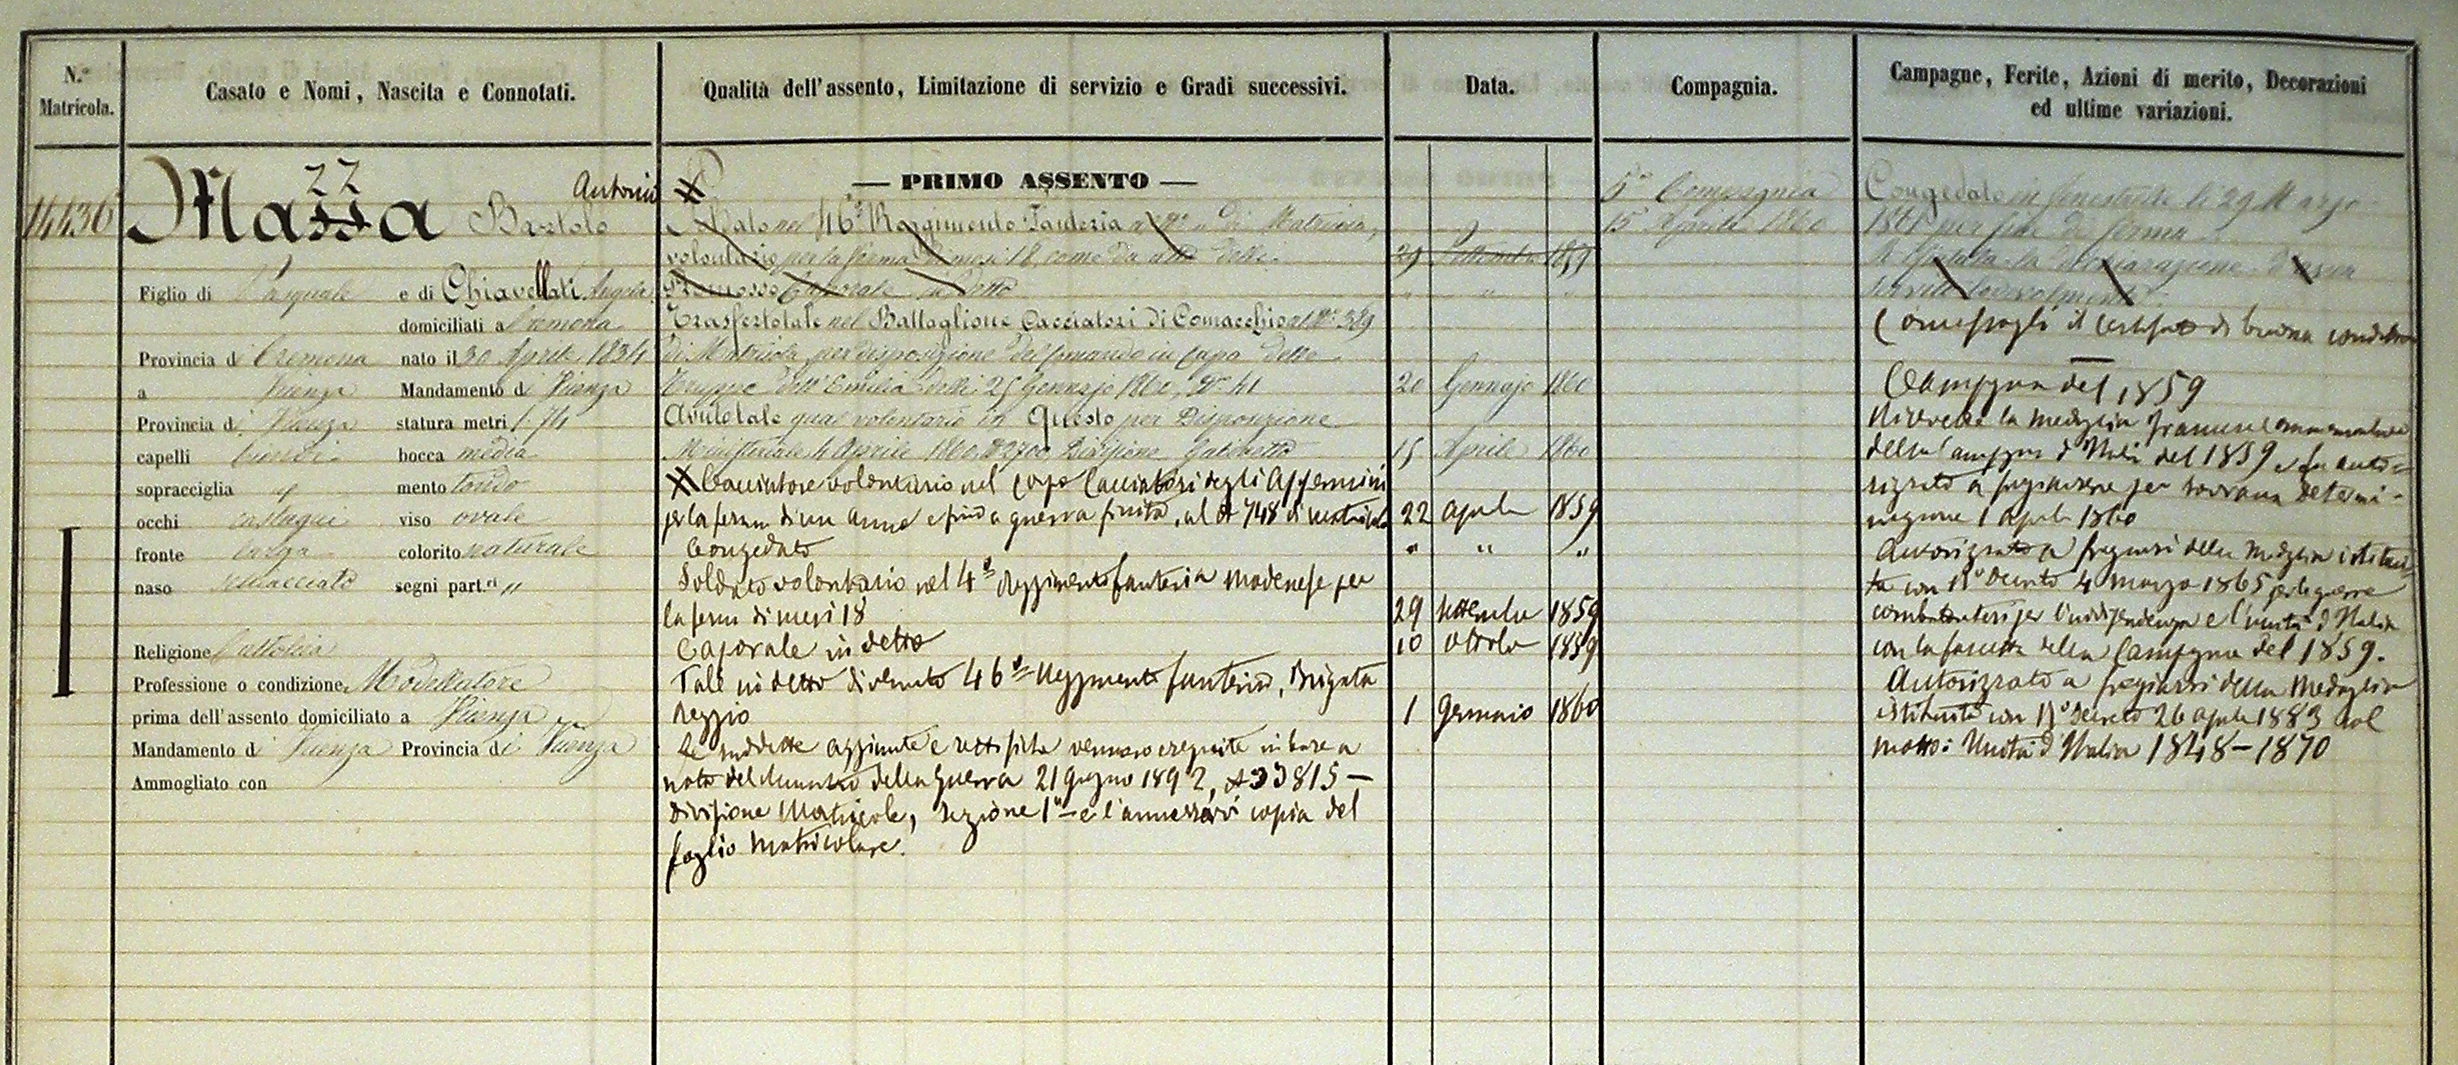 N.° Matricola.
Casato e Nomi, Nascita e Connotati.
Qualità dell'assento, Limitazione di servizio e Gradi successivi.
Data.
Compagnia.
Campagne, Ferite, Azioni di merito, Decorazioni
ed ultime variazioni.
14436
zz
Massa Bartolo Antonio
Figlio di Pasquale e di Chiavellati Angela
domiciliati a Cremona
Provincia di Cremona nato il 30 Aprile 1834
a Vicenza Mandamento di Vicenza
Provincia di Vicenza statura metri 1.74
capelli biondi bocca media
sopracciglia id mento tondo
occhi castagni viso ovale
fronte larga colorito naturale
naso schiacciato segni part.ri "
Religione Cattolica
Professione o condizione Modellatore
prima dell'assento domiciliato a Vicenza
Mandamento di Vicenza Provincia di Vicenza
Ammogliato con
— PRIMO ASSENTO —
X
Soldato nel 46° Reggimento Fanteria al N° " di Matricola,
volontario per la ferma di mesi 18, come da atto delli 29 Settembre 1859
Promosso Caporale in detto " " "
Trasfertotale nel Battaglione Cacciatori di Comacchio al N° 389
di Matricola per disposizione del Comando in Capo delle
Truppe dell'Emilia delli 25 Gennajo 1860, N° 41 20 Gennajo 1860
Avutotale qual volontario in Questo per Disposizione
Ministeriale 4 Aprile 1860 N 2700 Divisione Gabinetto 15 Aprile 1860
X Cacciatore volontario nel Corpo Cacciatori degli Appennini
per la ferma di un anno e fino a guerra finita, al N 748 di matricola 22 aprile 1859
Congedato " " "
Soldato volontario nel 4° Reggimento fanteria Modenese per
la ferma di mesi 18 29 settembre 1859
Caporale in detto 10 ottobre 1859
Tale in detto divenuto 46° Reggimento fanteria, Brigata
Reggio 1 Gennaio 1860
Le suddette aggiunte e rettifiche vennero eseguite in base a
nota del Ministro della Guerra 21 giugno 1892, N 33815 —
Divisione Matricole, Sezione 1a e l'annessavi copia del
foglio Matricolare.
5a Compagnia
15 Aprile 1860
Congedato in Fenestrelle li 29 Marzo
1861 per fine di ferma
Rifiutata la dichiarazione d'aver
servito lodevolmente.
Concessogli il Certificato di buona condotta
Campagna del 1859
Ricevette la Medaglia francese commemorativa
della Campagna d'Italia del 1859 e fu auto-
rizzato a fregiarsene per sovrana determi-
nazione 1 aprile 1860
Autorizzato a fregiarsi della Medaglia istitui-
ta con R° Decreto 4 marzo 1865 per le guerre
combattute per l'indipendenza e l'unità d'Italia
con la fascetta della Campagna del 1859.
Autorizzato a fregiarsi della Medaglia
istituita con R° Decreto 26 aprile 1883 col
motto: Unità d'Italia 1848 — 1870